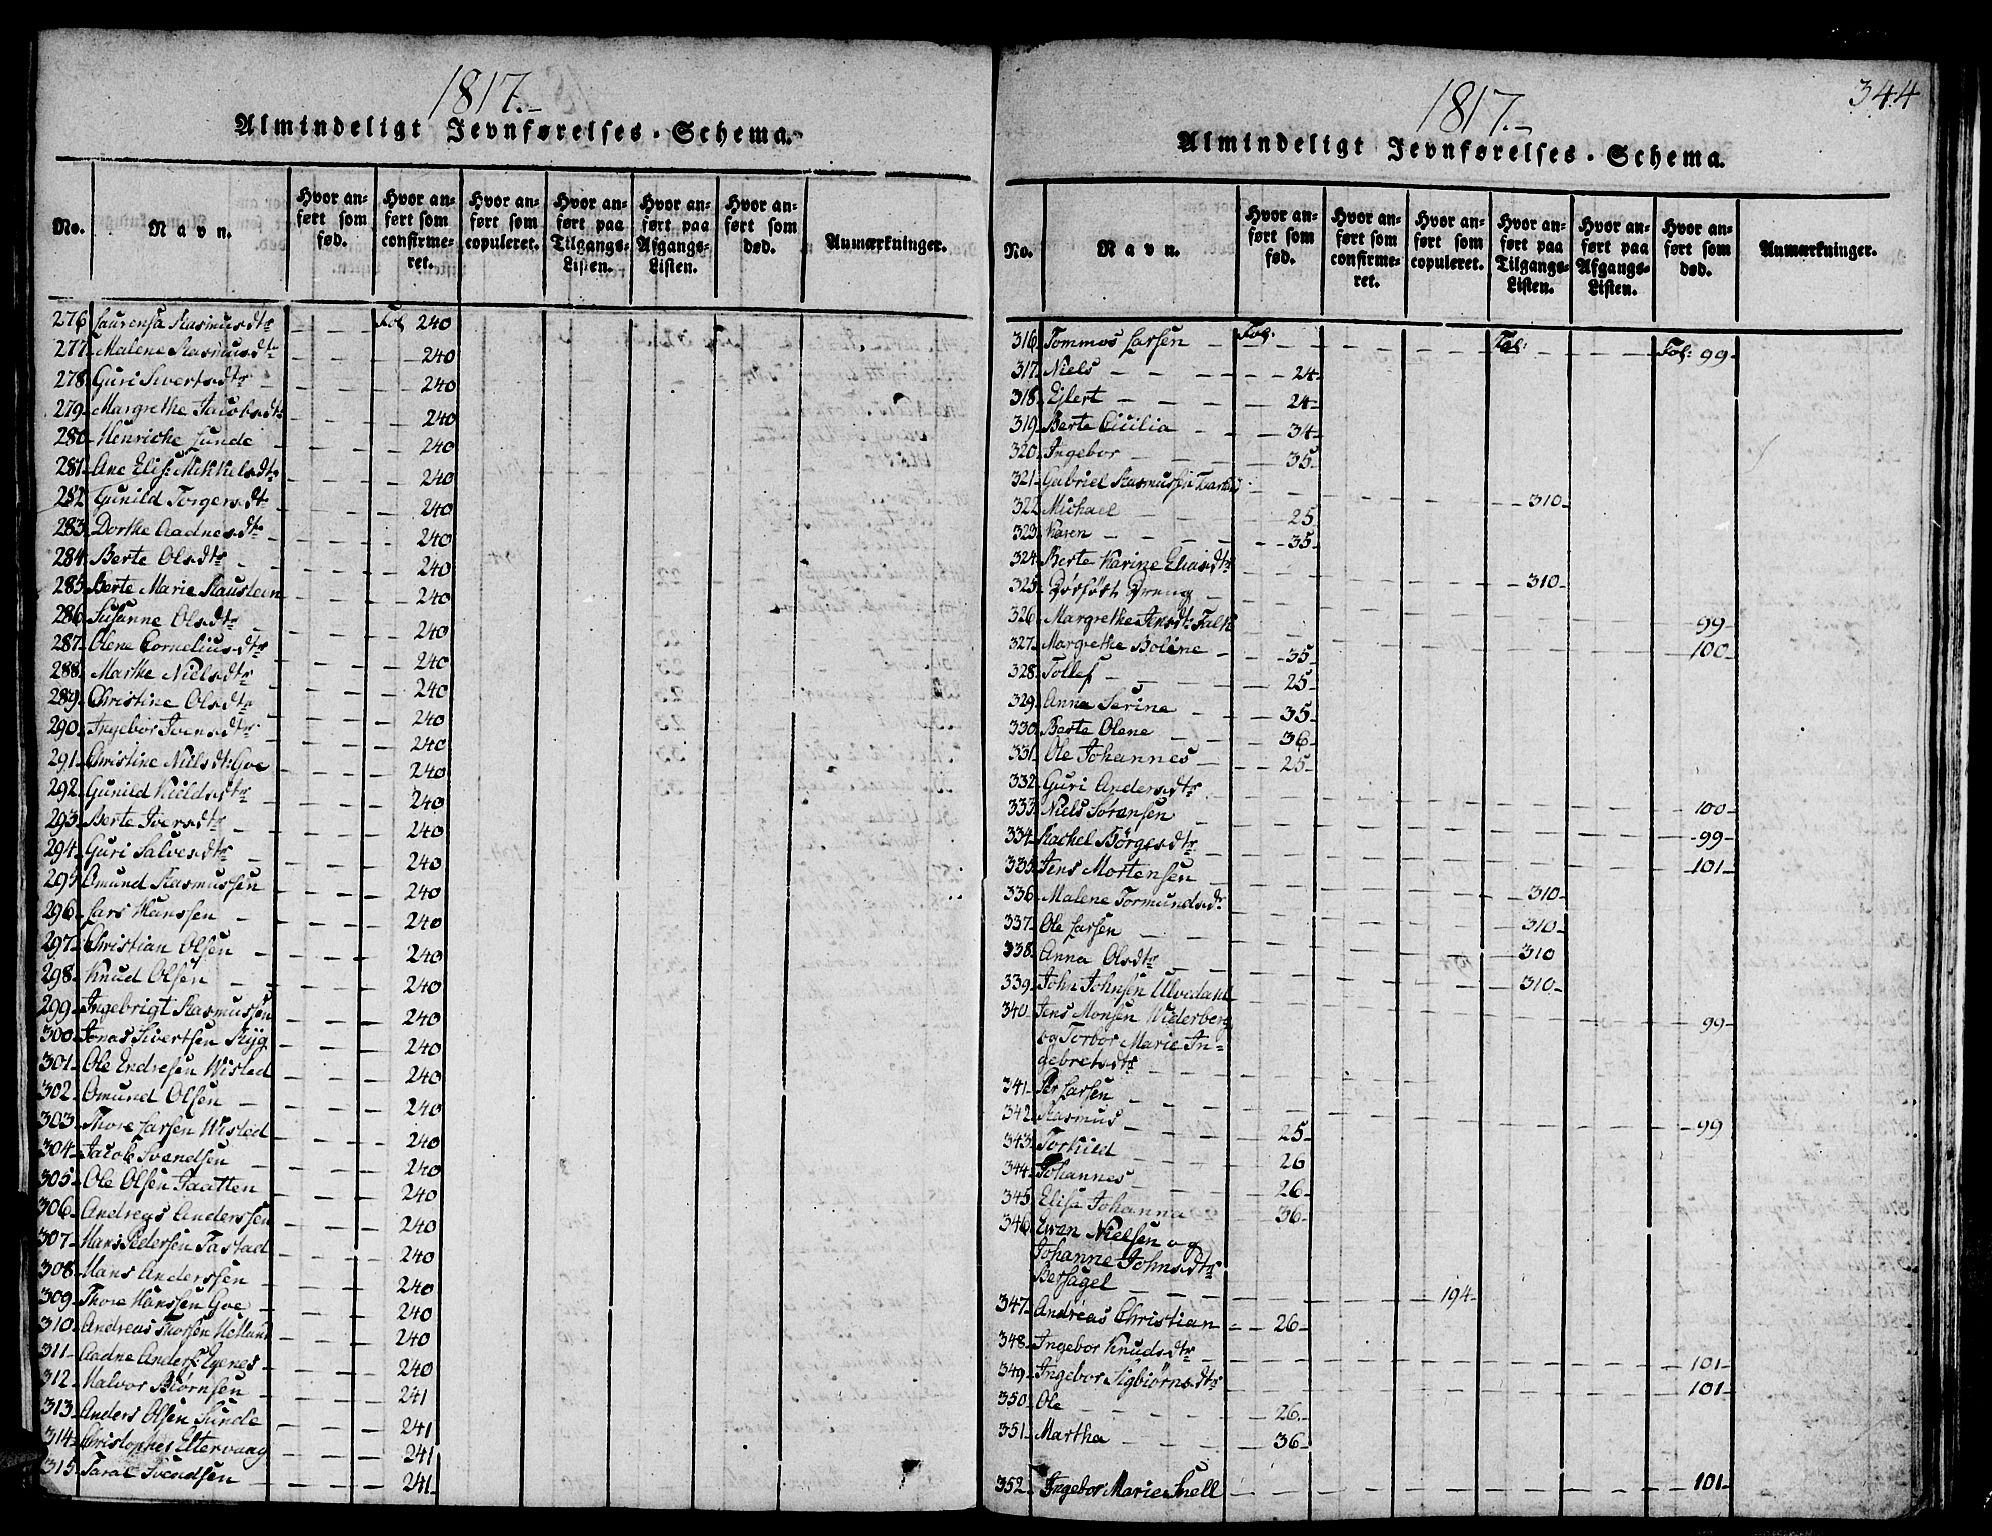 1817.-
Almindeligt Jevnførelses-Schema.
No.
Navn.
Hvor anført som fød.
Hvor anført som confirmeret.
Hvor anført som copuleret.
Hvor anført paa Tilgangs-Listen.
Hvor anført paa Afgangs-Listen.
Hvor anført som død.
Anmærkninger.
276 Laurensa Rasmusdtr Fol 240
277 Malene Rasmusdtr 240
278 Guri Sivertsdtr 240
279 Margrethe Jacobsdtr 240
280 Henriche Lunde 240
281 Ane Elis: Mikkelsdtr 240
282 Gunild Torgersdtr 240
283 Dorthe Aadnesdtr 240
284 Berte Olsdtr 240
285 Berte Marie Raustein 240
286 Susanne Olsdtr 240
287 Olene Corneliusdtr 240
288 Marthe Nielsdtr 240
289 Christine Olsdtr 240
290 Ingebor Iversdtr 240
291 Christine Nielsdt: Goe 240
292 Gunild Kieldsdtr 240
293 Berte Iversdtr 240
294 Guri Salvesdtr 240
295 Omund Rasmussen 240
296 Lars Hanssen 240
297 Christian Olsen 240
298 Knud Olsen 240
299 Ingebrigt Rasmussen 240
300 Jonas Sivertsen Ryg 240
301 Ole Endresen Wisted 240
302 Omund Olsen 240
303 Thore Larsen Wisted 240
304 Jacob Svendsen 240
305 Ole Olsen Taatten 240
306 Andreas Anderssen 240
307 Hans Pedersen Tastad 240
308 Hans Anderssen 240
309 Thore Hanssen Goe 240
310 Andreas Thorsen Hetland 240
311 Aadne Anders: Egenes 240
312 Halvor Biørnsen 241
313 Anders Olsen Sunde 241
314 Christopher Eltervaag 241
315 Taral Svendsen 241
344
1817.-
Almindeligt Jevnførelses-Schema.
No.
Navn.
Hvor anført som fød.
Hvor anført som confirmeret.
Hvor anført som copuleret.
Hvor anført paa Tilgangs-Listen.
Hvor anført paa Afgangs-Listen.
Hvor anført som død.
Anmærkninger.
316 Tommos Larsen Fol: Fol: Fol: 99
317 Niels 24
318 Ejlert 24
319 Berte Cicilia 34
320 Ingebor 35
321 Gabriel Rasmussen 310
322 Michael 25
323 Karen 35
324 Berte Karine Eliasdtr 310
325 Dødfødt Dreng
326 Margrethe Jensdt: Falk 99
327 Margrethe Boline 35 100
328 Tollef 25
329 Anna Serine 35
330 Berte Olene 36
331 Ole Johannes 25
332 Guri Andersdtr 100
333 Niels Sørensen 99
334 Rachel Børgesdtr 101
335 Jens Mortensen
336 Malene Tormundsdtr 310
337 Ole Larsen 310
338 Anna Olsdtr 310
339 John Johnsen Ulvedahl 310
340 Jens Monsen Widerberg 99
og Torbor Marie In-
gebretsdtr
341 Per Larsen
342 Rasmus 25 99
343 Torkild 26
344 Johannes 26
345 Elisa Johanna 36
346 Even Nielsen og
Johanne Johnsdtr
Bersagel 194
347 Andreas Christian 26
348 Ingebor Knudsdtr 101
349 Ingebor Sigbiørnsdtr 101
350 Ole 26
351 Martha 36
352 Ingebor Marie Snell 101